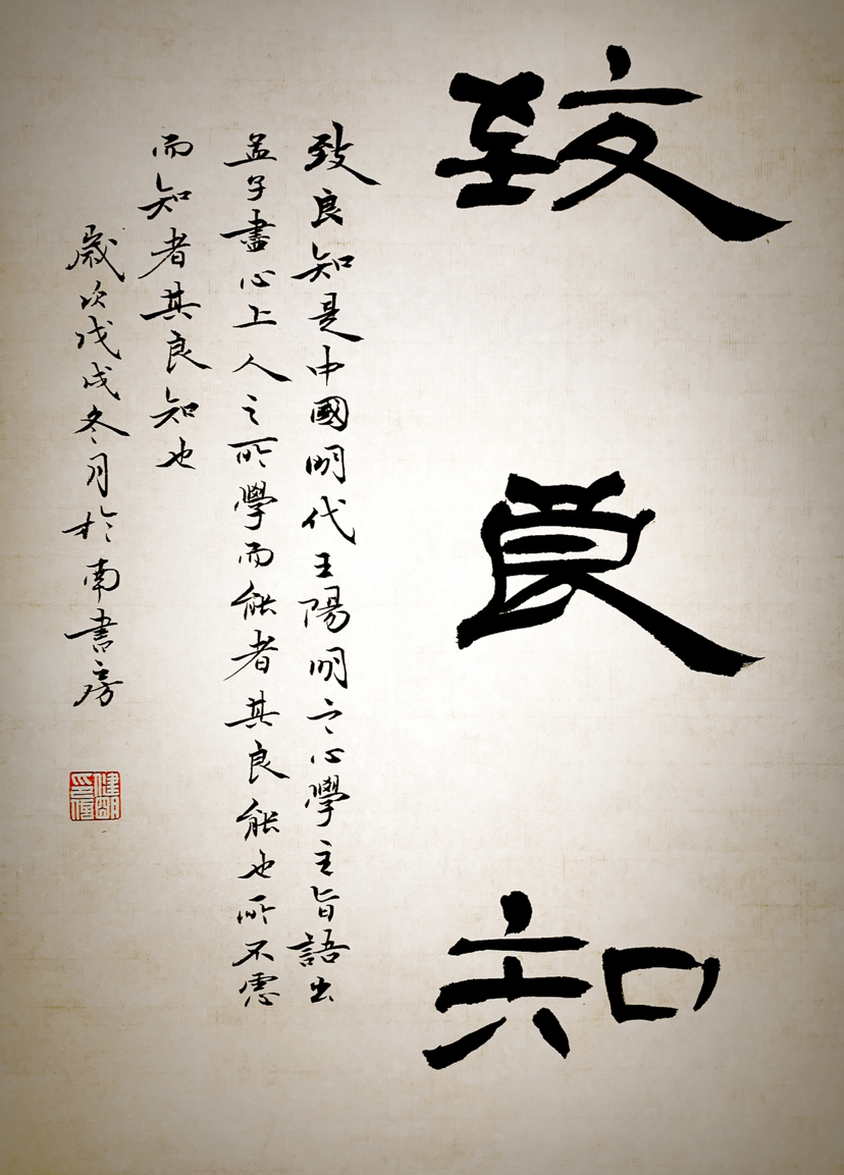 致良知
致良知是中國明代王陽明之心學主旨語出
孟子盡心上人之所學而能者其良能也所不慮
而知者其良知也
歲次戊戌冬月於南書房